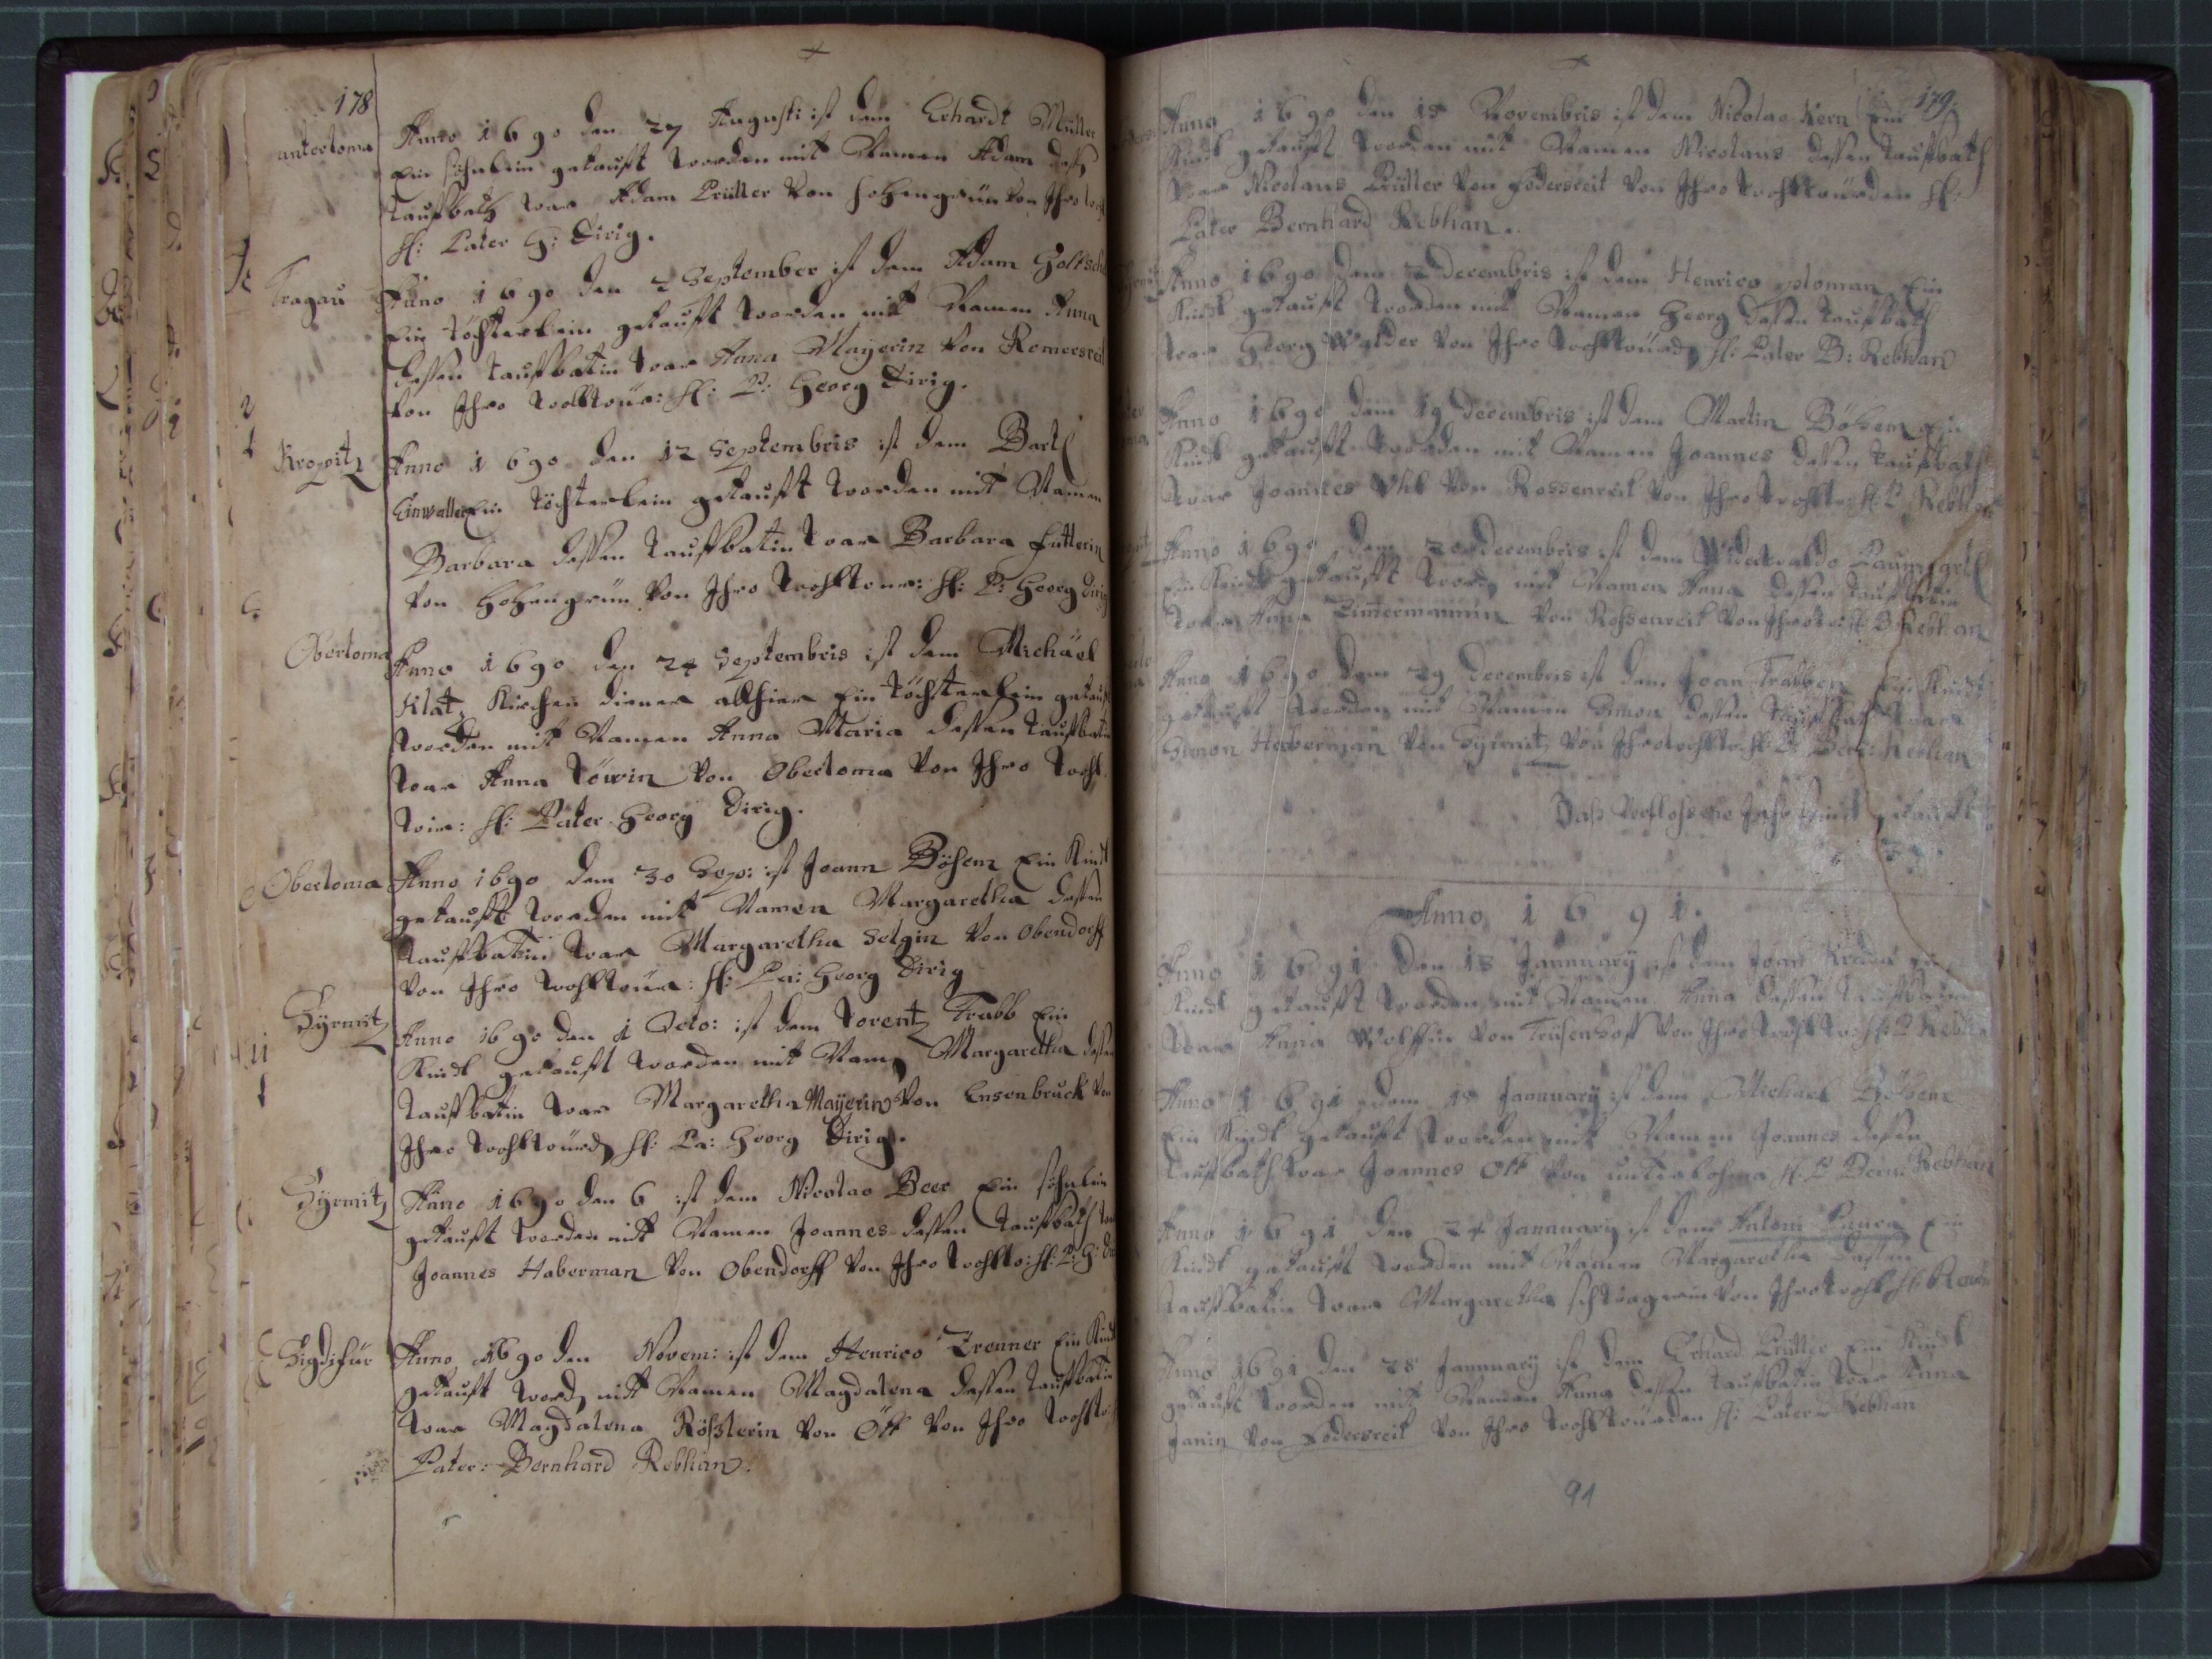 178
untertoma
Anno 1690 den 27 Augusti ist dem Erhardt Müller
Ein söhnlein getaufft worden mit Namen Adam deß
Tauffbath war Adam Prütter von Hohengrün von Ihro
H: Pater G: Dirig.
Tragau
Anno 1690 den 2 September ist dem Adam
Ein töchterlein getaufft worden mit Namen Anna
dessen tauffbatin war Anna Mayerin von Romersreit
von Ihro wollwür: H: P: Georg Dirig.
Kropitz
Anno 1690 den 12 Septembris ist dem Bartl
Ein töchterlein getaufft worden mit Namen
Barbara dessen tauffbatin war Barbara
von Hohengrün von Ihro H: P: Georg Dirig
Obertoma
Anno 1690 den 24 Septembris ist dem Michäel
Klatz Kirchen diener allhier Ein töchterlein getauft
worden mit Namen Anna Maria dessen tauffbatin
war Anna Löwin von Obertoma von Ihro wohl
H: Pater Georg Dirig.
Obertoma
Anno 1690 dem 30 Sep: ist Joann Böhem Ein Kindt
getaufft worden mit Namen Margaretha dessen
tauffbatin war Margaretha von Obendorff
von Ihro wohlwür: H: Pa: Georg Dirig
Sÿrmitz
Anno 1690 den 1 Octo: ist dem Lorentz Trabb Ein
Kindt getaufft worden mit Nam Margaretha dessen
tauffbatin war Margaretha Maÿerin von Ensenbruck von
Ihro wohlwürd H: Pa: Georg Dirig.
Sÿrmitz
Anno 1690 den 6 ist dem Nicolao Beer Ein söhnlein
getaufft worden mit Namen Joannes dessen tauffbath
Joannes Haberman von Obendorff von Ihro H: P: G:
Anno 1690 den Novem: ist dem Henrico Trenner Ein Kindt
getaufft word mit Namen Magdalena dessen tauffbatin
war Magdalena Rößlerin von Ött von Ihro
Pater: Bernhard Rebhan.
179
Anno 1690 den 15 Novembris ist dem Nicolao Kern Ein
Kindt getaufft worden mit Namen Nicolaus dessen tauffbath
war Nicolaus Prütter von Fodersreit von Ihro wohlwürden H:
Pater Bernhard Rebhan.
Anno 1690 dem 2 Decembris ist dem Henrico Ploman Ein
Kindt getaufft worden mit Namen Georg dessen tauffbath
war Georg von Ihro wohlwürd H: Pater B: Rebhan
Anno 1690 dem 19 Decembris ist dem Martin Böhem Ein
Kindt getaufft worden mit Namen Joannes dessen tauffbath
war Joannes Uhl von Rossenreit von Ihro H: P Rebhan
Anno 1690 dem 20 Decembris ist dem
Ein Kindt getaufft word mit Namen Anna dessen tauffbatin
war Anna Zimermannin von Rossenreit von Ihro H: P: B Rebhan
Anno 1690 dem 29 Decembris ist dem Joan Trabben Ein Kindt
getaufft worden mit Namen Simon dessen tauffbath war
Simon Haberman von Sÿrmitz von Ihro H: P: Bern: Rebhan
Das verflossene Jahr seind getaufft
Anno 1691.
Anno 1691 den 13 Jannuarÿ ist dem Joan Ein
Kindt getaufft worden mit Namen Anna dessen tauffbatin
war Anna Wolffin von von Ihro H: P: Rebhan
Anno 1691 dem 18 Jannuarÿ ist dem Michael Böhem
Ein Kindt getaufft worden mit Namen Joannes dessen
tauffbath war Joannes Ott von unterlohma H. P Bern: Rebhan
Anno 1691 den 24 Jannuarÿ ist dem Antoni Ein
Kindt getaufft worden mit Namen Margaretha dessen
tauffbatin war Margaretha von Ihro
Anno 1691 den 28 Jannuarÿ ist dem Erhard Prütter Ein Kindt
getaufft worden mit Namen Anna dessen tauffbatin war Anna
Janin von Fodersreit von Ihro wohlwürden H: Pater Rebhan
91